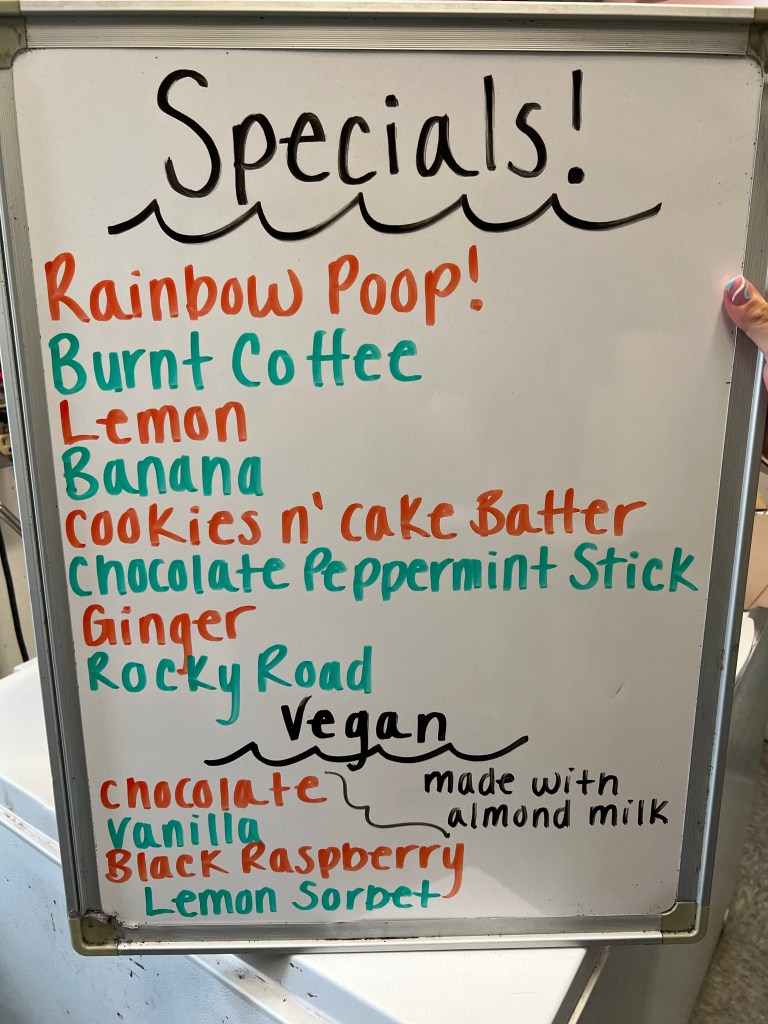 Specials!
Rainbow Poop!
Burnt Coffee
Lemon
Banana
cookies n' cake Batter
Chocolate Peppermint Stick
Ginger
Rocky Road
Vegan
chocolate
made with
almond milk
vanilla
Black Raspberry
Lemon Sorbet